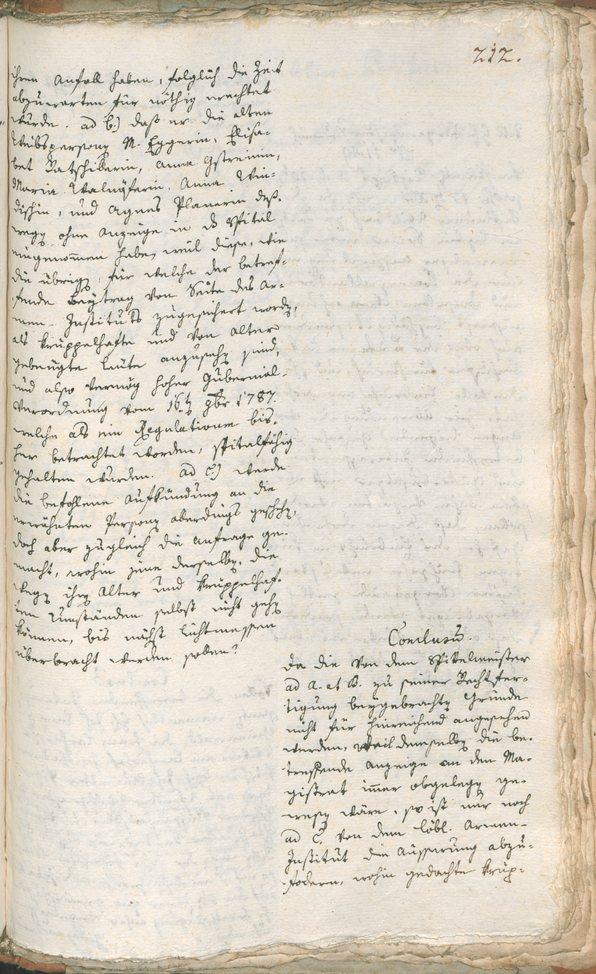 212.
ihren Anfall haben, folglich die Zeit
abzuwarten für nöthig erachtet
würde. ad b.) daß er die alten
Weibspersonen M. Eggerin, Elisa-
bet Anna Gstreinin,
Maria Anna Win-
dischin, und Agnes Planerin deß-
wegen ohne Anzeige in das Spital
eingenommen habe, weil diese, wie
die übrigen, für welche der betref-
fende Beytrag von Seite des Ar-
men-Instituts zugesichert worden,
als krüppelhafte und von Alter
gebeugte Leute anzusehen sind,
und also vermög hoher Gubernial-
Verordnung vom 16ten 9br 1787.
welche als ein Regulativum bis-
her betrachtet worden, spitalfähig
gehalten wurden. ad c.) werde
die befohlene Aufkündung an die
erwähnten Personen allerdings geschehen,
doch aber zugleich die Anfrage ge-
macht, wohin jene derselben, die
wegen ihren Alter und krüppelhaf-
ten Umständen selbst nicht gehen
können, bis nächst Lichtmessen
überbracht werden sollen?
Conclusum.
Da die von dem Spitelmeister
ad A. et B. zu seiner Rechtfer-
tigung beygebrachten Gründe
nicht für hinreichend angesehen
werden, weil demselben die be-
treffende Anzeige an den Ma-
gistrat immer obgelegen ge-
wesen wäre, so ist nur noch
ad C. von dem löbl. Armen-
Institut die Äusserung abzu-
fodern, wohin gedachte krüp-